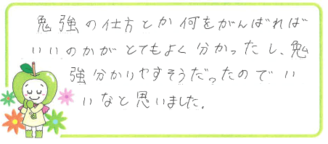 勉強の仕方とか何をがんばれば
いいのかがとてもよく分かったし、勉
強分かりやすそうだったのでい
いなと思いました。